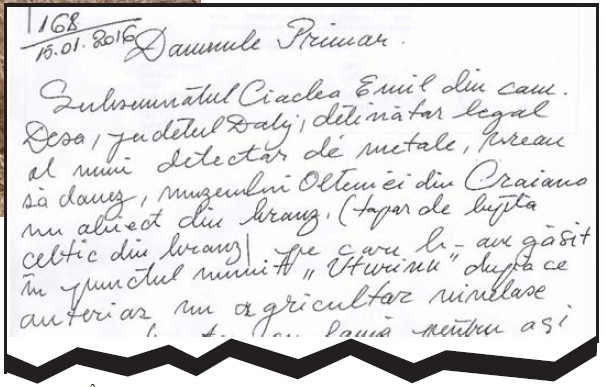 168
15.01.2016
Domnule Primar.
Subsemnatul Ciaclea Emil din com.
Desa, județul Dolj, deținător legal
al unui detector de metale, vreau
să donez, muzeului Olteniei din Craiova
un obiect din bronz. (topor de luptă
celtic din bronz) pe care l-am găsit
în punctul numit „Vturinu” după ce
anterior un agricultor
pentru ași